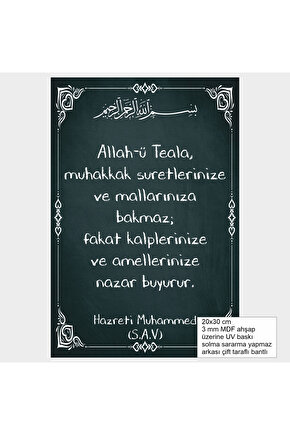 بسم الله الرحمن الرحيم
Allah-ü Teala,
muhakkak suretlerinize
ve mallarınıza
bakmaz;
fakat kalplerinize
ve amellerinize
nazar buyurur.
Hazreti Muhammed
(S.A.V)
20x30 cm
3 mm MDF ahşap
üzerine UV baskı
solma sararma yapmaz
arkası çift taraflı bantlı